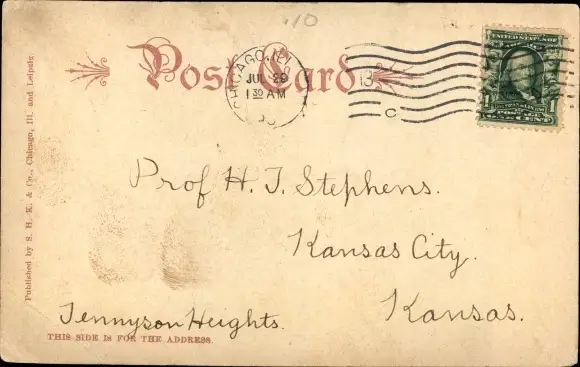 10
Post Card
CHICAGO, ILL.
JUL 29
1 30 AM
13
C
UNITED STATES OF
1 POSTAGE 1
ONE CENT
Prof H. T. Stephens.
Kansas City.
Kansas.
Tennyson Heights.
THIS SIDE IS FOR THE ADDRESS.
Published by S. H. K. & Co., Chicago, Ill. and Leipzig